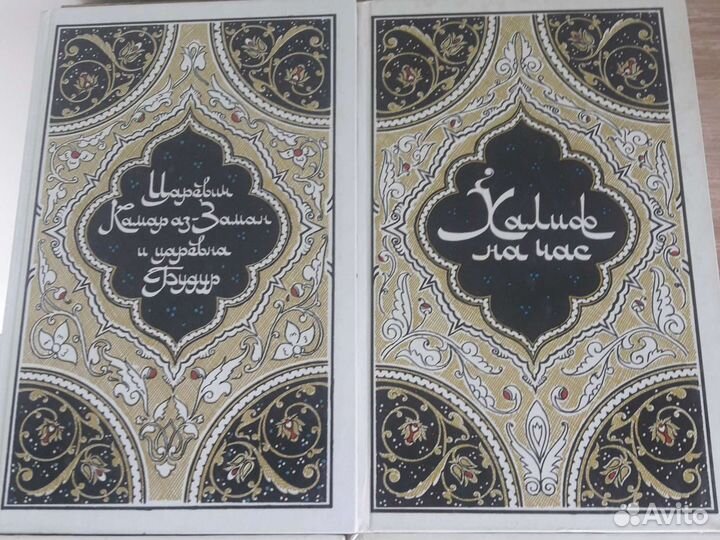 Царевич
Камар аз-Заман
и царевна
Будур
Халиф
на час
Avito